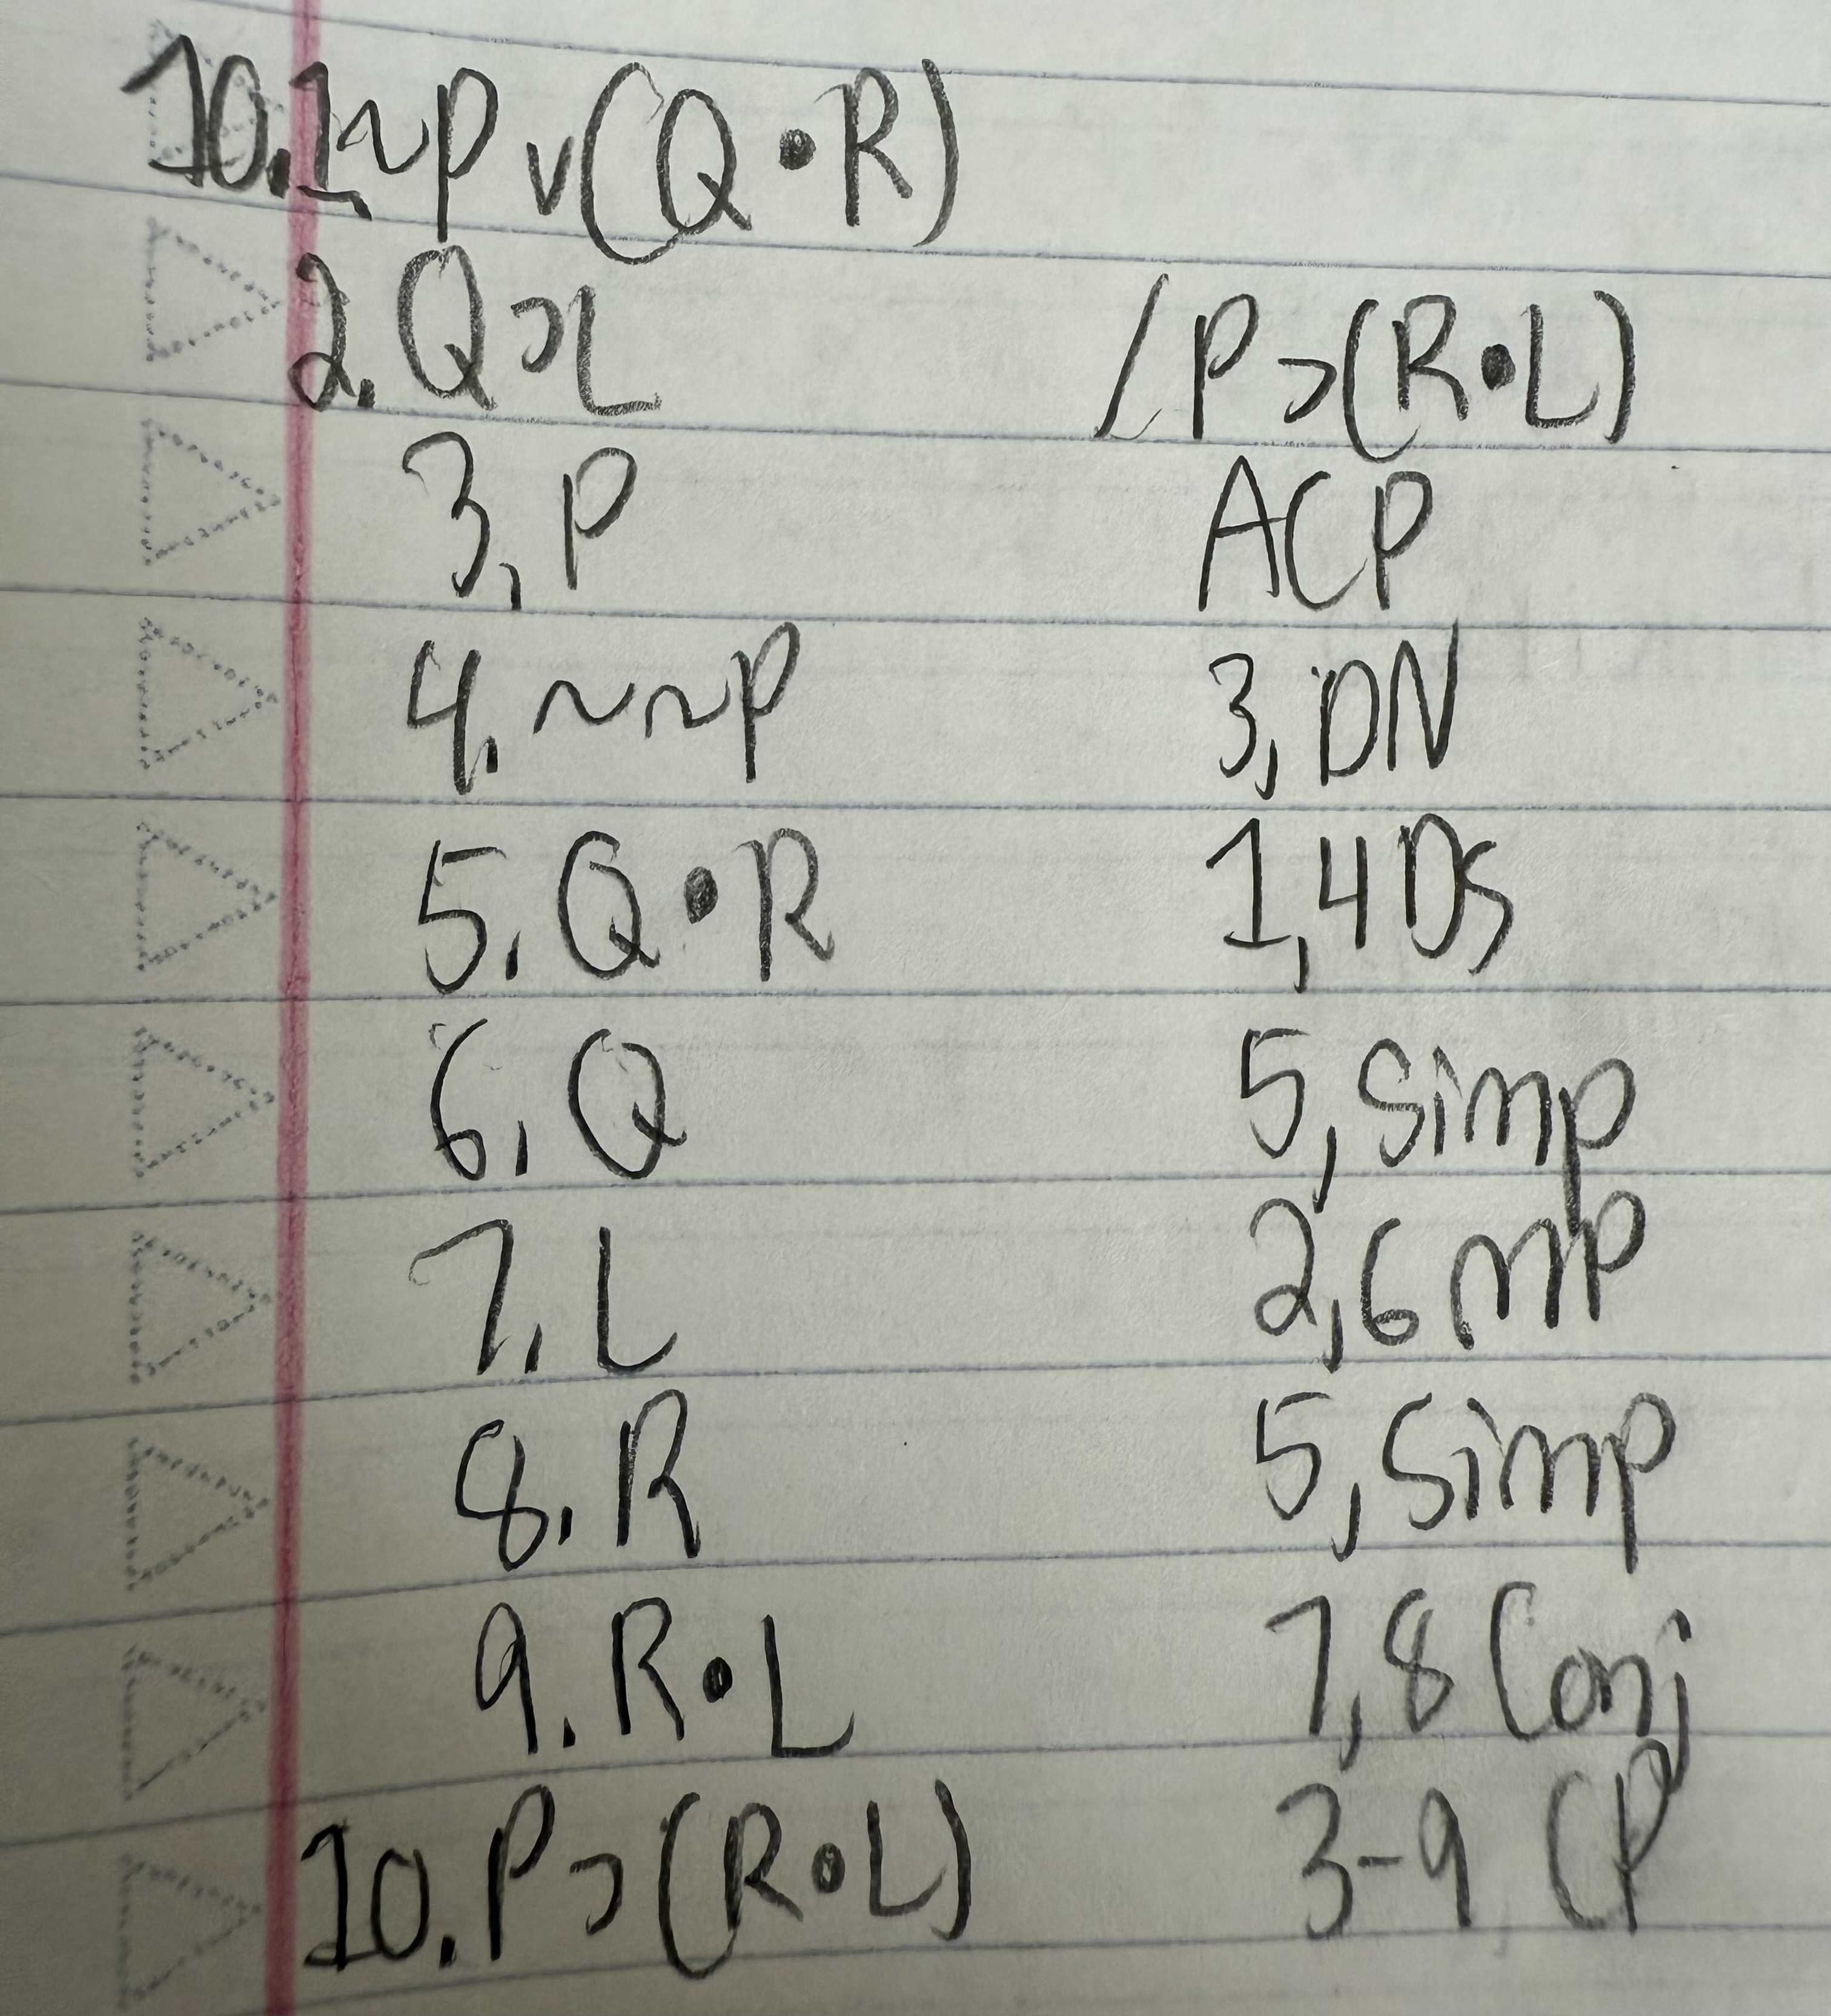 10. 1. ~P v (Q • R)
2. Q ⊃ L / P ⊃ (R • L)
3. P ACP
4. ~~P 3, DN
5. Q • R 1,4 DS
6. Q 5, Simp
7. L 2,6 MP
8. R 5, Simp
9. R • L 7,8 Conj
10. P ⊃ (R • L) 3-9 CP